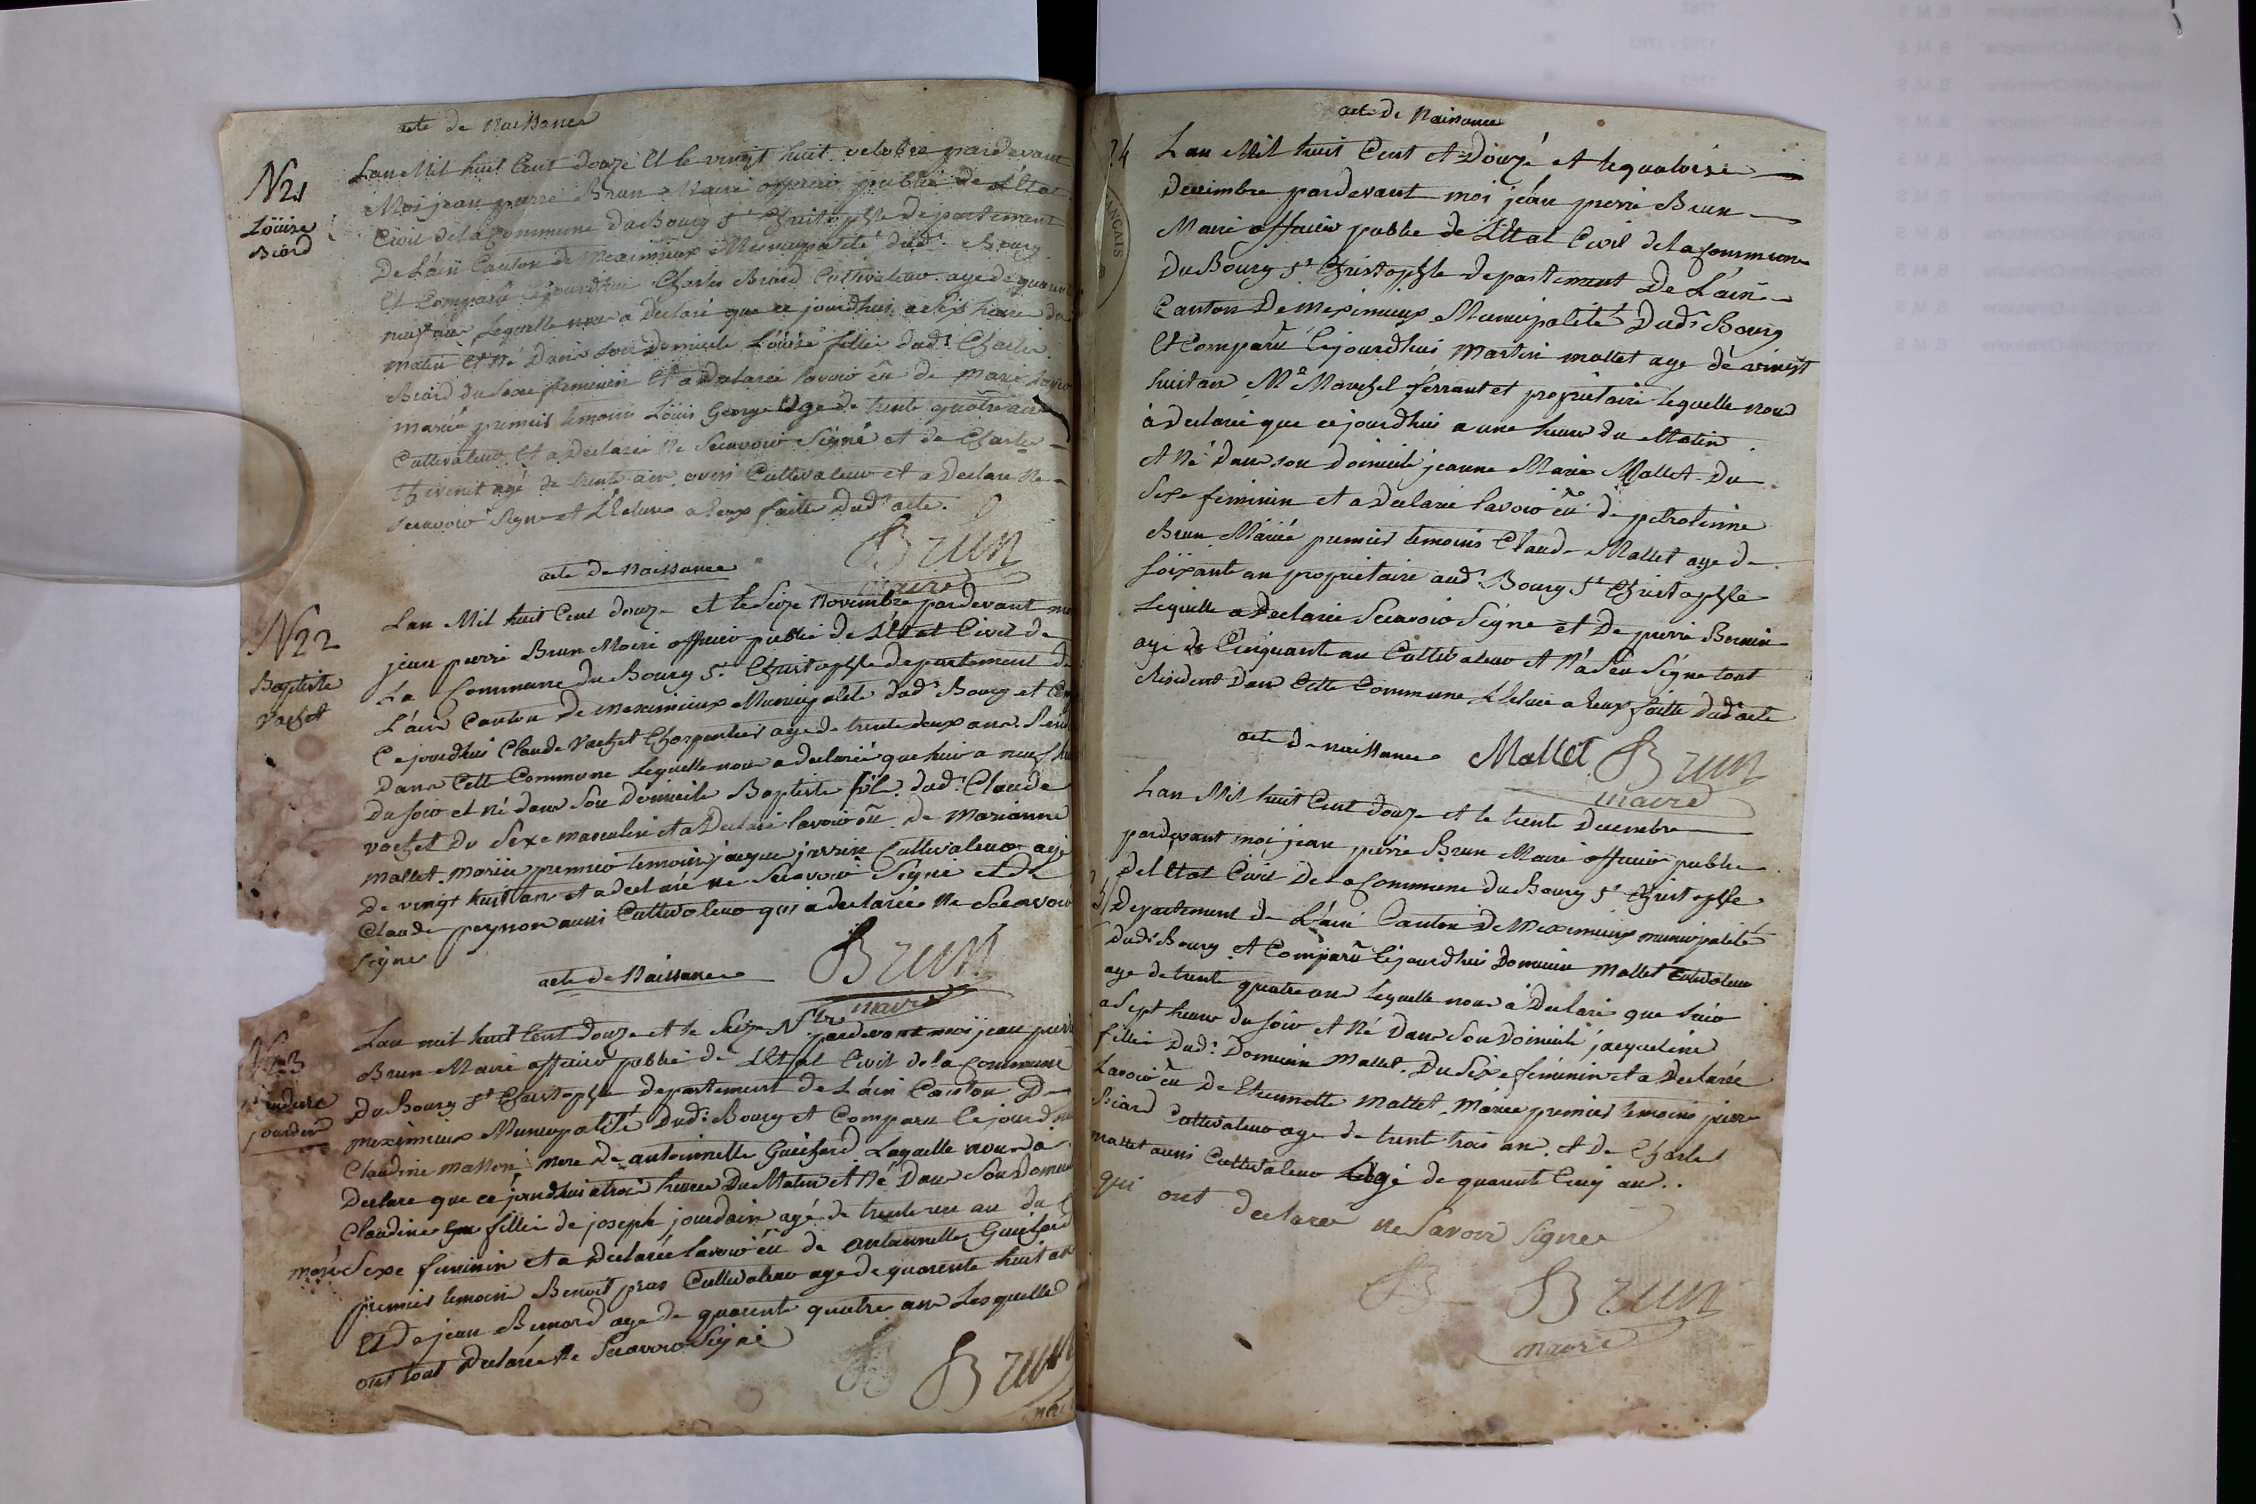 acte de Naissance
N 21
Löüise
Biard
Lan Mil huit Cent douze Et le vingt huit octobre pardevant
Moi jean pierre Brun Maire officier public de Létat
Civil dela Commune du Bourg St Christophle departement
De Láin Canton de Meximieux Municipalité dudt Bourg
Et Comparu Cejourdhui Charles Biard Cultivateur age de quarante
neuf an Lequelle nous a declaré que ce jourdhui a six heure du
matin Et Né Dans son Domicile Löüise fillie dudt Charles
Biard du sexe feminin Et a declaréé lavoir eü de Marie
mariéé premiér temoin Löüis George Agé de trente quatre an
Cultivateur Et a declaréé Ne Scavoir Signé et de Charles
thivent agé de trente an aussi Cultivateur et a declare Ne
scavoir Signe et Lecture a Eux faitte dudt acte.
Brun
maire
acte de Naissance
N 22
Baptiste
Vachet
Lan Mil huit Cent douze et le Seize Novembre pardevant moi
jean pierre Brun Maire officier public de Létat Civil de
La Commune du Bourg St Christophle departement de
Láin Canton de meximieux Municipalité dudt Bourg et Com
Cejourdhui Claude Vachet Charpentier age de trente deux ans. Resid
Dans Cette Commune Lequelle nous a declaréé que hier a neuf heu
Du soir et Né dans son Domicile Baptiste fils dudt Claude
vachet Du Sexe masculin et a Declaré lavoir eü de Marianne
mallet mariéé premier temoin jacque jossin Cultivateur agé
De vingt huit an et a declaré ne Scavoir Signé et de
Claude peysson aussi Cultivateur qui a declaréé Ne Scavoir
signe
Brun
maire
acte de Naissance
N 23
Claudine
jourdain
Lan mil huit Cent douze et le Seize Nbre pardevant moi jean pierre
Brun Maire officier public de Létat Civil de la Commune
Du Bourg St Christophle departement de Láin Canton De
meximieux Municipalité Dudt Bourg et Comparu Cejourdhui
Claudine Masson mere de antoinnette Guichard Laquelle nous a
Declare que cé jourdhui a troi heure Du Matin et Né Dans Son Domicile
Claudine fillie de joseph jourdain agé de trente un an du
marié Sexe feminin et a declaréé lavoir éü de antoinnette Guichard
premier temoin Benoit pras Cultivateur age de quarente huit an
Et De jean Bernard age de quarente quatre an Lesquelle
ont tout declaréé Ne Scavoir Signé
Brun
maire
acte de Naissance
24
Lan Mil huit Cent et Douzé et le quatorse
Decimbre pardevant moi jéan pierre Brun
Mairé officier public de Létat Civil dela Commune
Du Bourg St Christophle departement De Láin
Canton De Meximieux Municipalité Dudt Bourg
Et Comparu Cejourdhui Martin mallet age dé vingt
huit an Me Marechel ferrant et propriétairé lequelle nous
à declaréé que cejourdhui a une heure du Matin
et Né dans son domicile jeanne Marie Mallet Du
Sexe feminin et a Declaréé lavoir éü de petrolinne
Brun Mariéé premiér temoins Claude Mallet age de
soixante an proprietaire audt Bourg St Christophle
Lequelle a Declaréé Scavoir Signe et De pierre Bernin
agé de Cinquante an Cultivateur et N'a Seu Signe tout
Résident Dans Cette Commune Lecture a Eux faitte Dudt acte
Mallet
Brun
maire
acte de naissance
25
Lan Mil huit Cent douze et le trente Decembre
pardevant moi jean pierre Brun Maire officier public
de Létat Civil De la Commune du Bourg St Christophle
Departement de Láin Canton De Meximieux municipalité
Dudt Bourg et Comparu Cejourdhui Domicin Mallet Cultivateur
age de trente quatre an lequelle nous a Declaré que hier
a Sept heure du soir et Né Dans Son Domicile jacqueline
fillie Dudt Domicin Mallet Du Sexe féminin et a Declaréé
Lavoir éü De Etiennette Mallet Mariée premier temoins pierre
Biard Cultivateur age de trente trois an et De Charles
mallet aussi Cultivateur agé de quarente Cinq an.
qui ont declaree ne Savoir Signee
Brun
maire